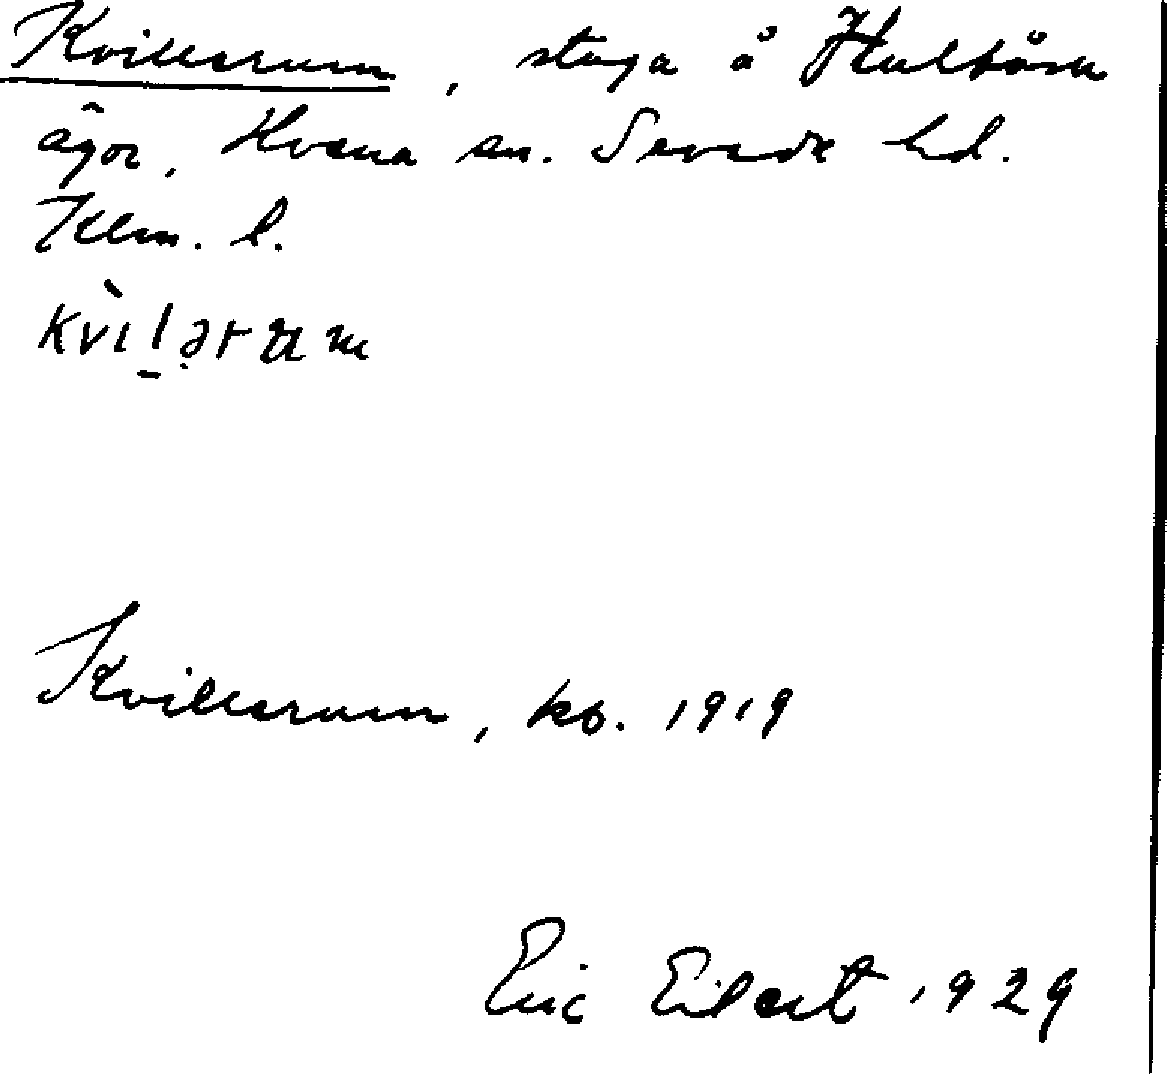 Kvillerum, stuga å Hultåsa
ägor, Hvena sn. Sevede hd.
Klm. l.
Kvillerum, kb. 1919
Eric Eilert 1929